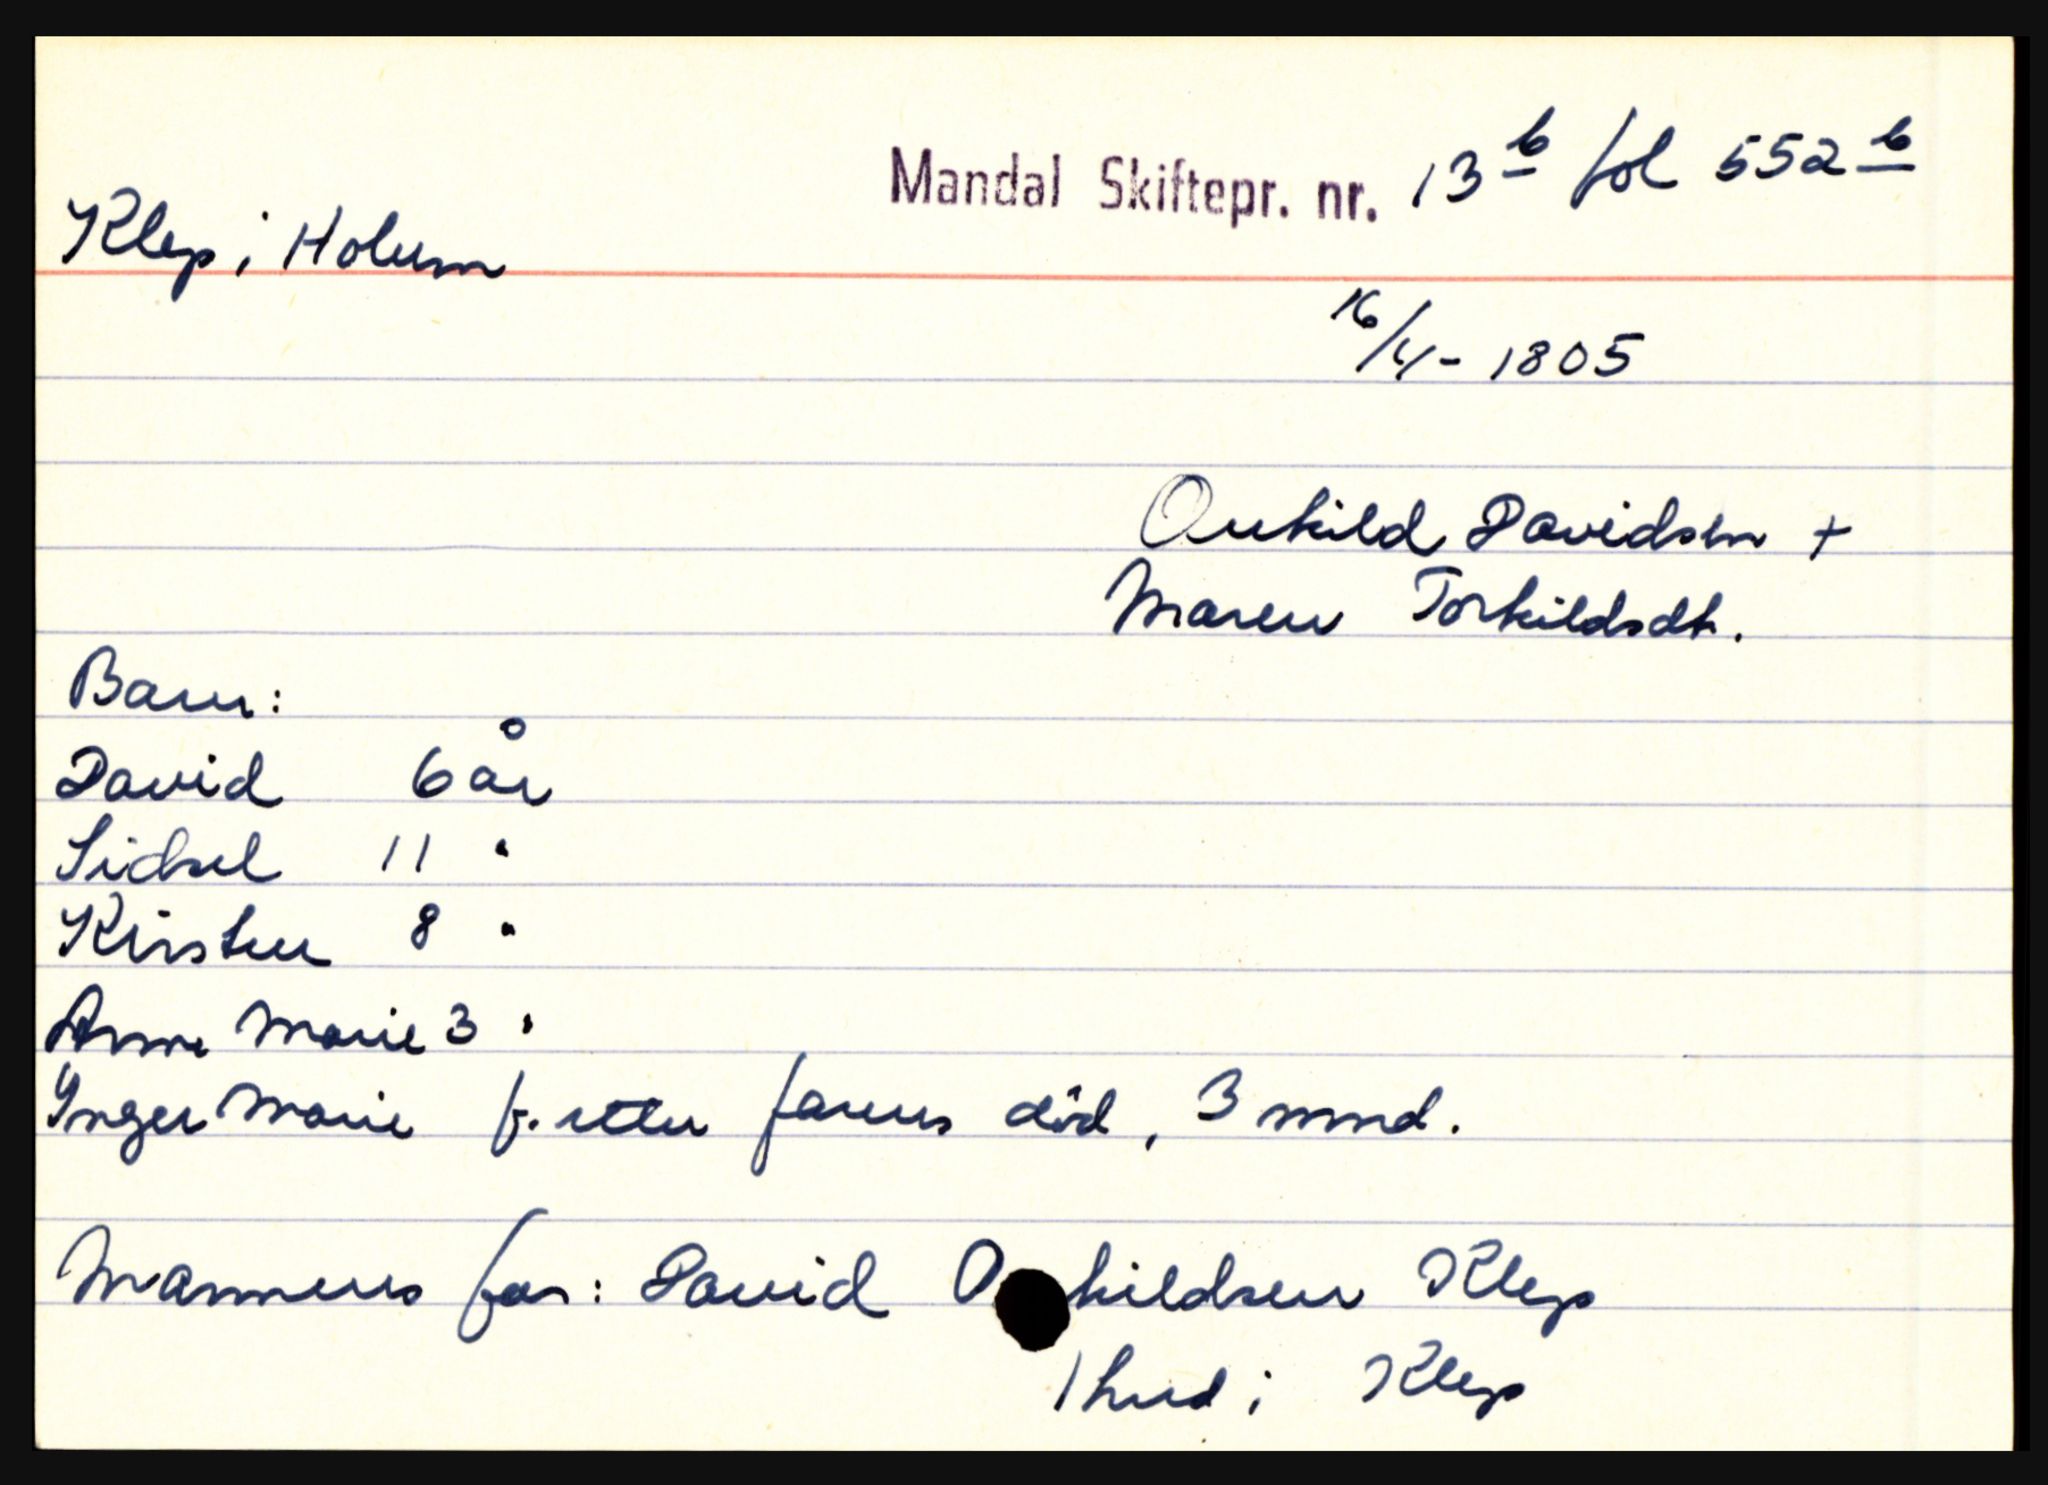 Mandal Skiftepr. nr. 13b fol 552b
Klep i Holum
16/4 - 1805
Onkild Davidsen +
Maren Torkildsdt.
Barn:
David 6 år
Sidsel 11 "
Kirsten 8 "
Anne Marie 3 "
Inger Marie f. etter farens död, 3 mnd.
Mannens far: David O kildsen Klep
1 hud i Klep